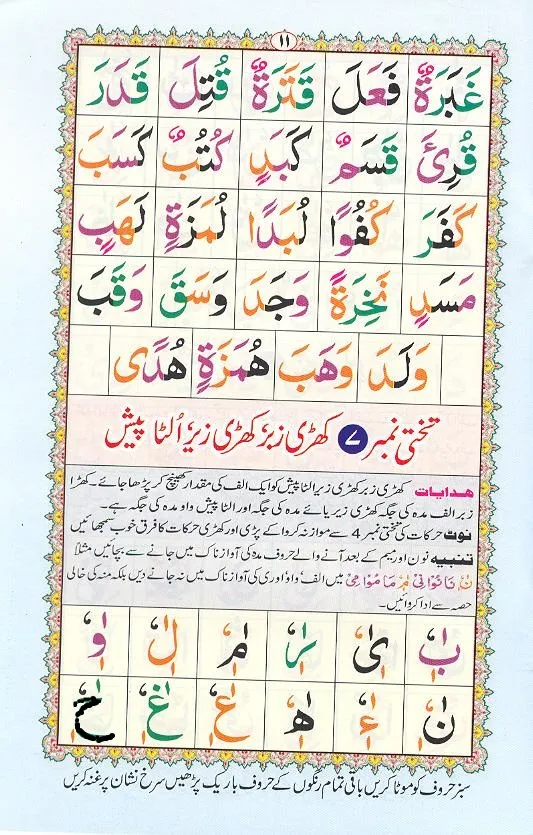 ۱۱
غَبَرَةٌ فَعَلَ قَتَرَةٌ قُتِلَ قَدَرَ
قُرِئَ قَسَمٌ كَبَدٍ كُتُبٌ كَسَبَ
كَفَرَ كُفُوًا لُبَدًا لُمَزَةٍ لَهَبٍ
مَسَدٍ نَخِرَةً وَجَدَ وَسَقَ وَقَبَ
وَلَدَ وَهَبَ هُمَزَةٍ هُدًى
تختی نمبر ۷ کھڑی زبر کھڑی زیر اُلٹا پیش
ھدایات کھڑی زبر کھڑی زیر الٹا پیش کو ایک الف کی مقدار کھینچ کر پڑھا جائے۔ کھڑا
زبر الف مدہ کی جگہ کھڑی زیر یائے مدہ کی جگہ اور الٹا پیش واو مدہ کی جگہ ہے۔
نوٹ حرکات کی تختی نمبر 4 سے موازنہ کروا کے پڑی اور کھڑی حرکات کا فرق خوب سمجھائیں
تنبیہ نون اور میم کے بعد آنے والے حروف مدہ کی آواز ناک میں جانے سے بچائیں مثلاً
نٰ نَا نُوْا نِىْ مٰ مَا مُوْا مِىْ میں الف واو اور ی کی آواز ناک میں نہ جانے دیں بلکہ منہ کی خالی
حصہ سے ادا کروائیں۔
بٰ یٰ رٰ مٰ لٰ وٰ
نٰ ءٰ ھٰ عٰ غٰ حٰ
سبز حروف کو موٹا کریں باقی تمام رنگوں کے حروف باریک پڑھیں سرخ نشان پر غنہ کریں